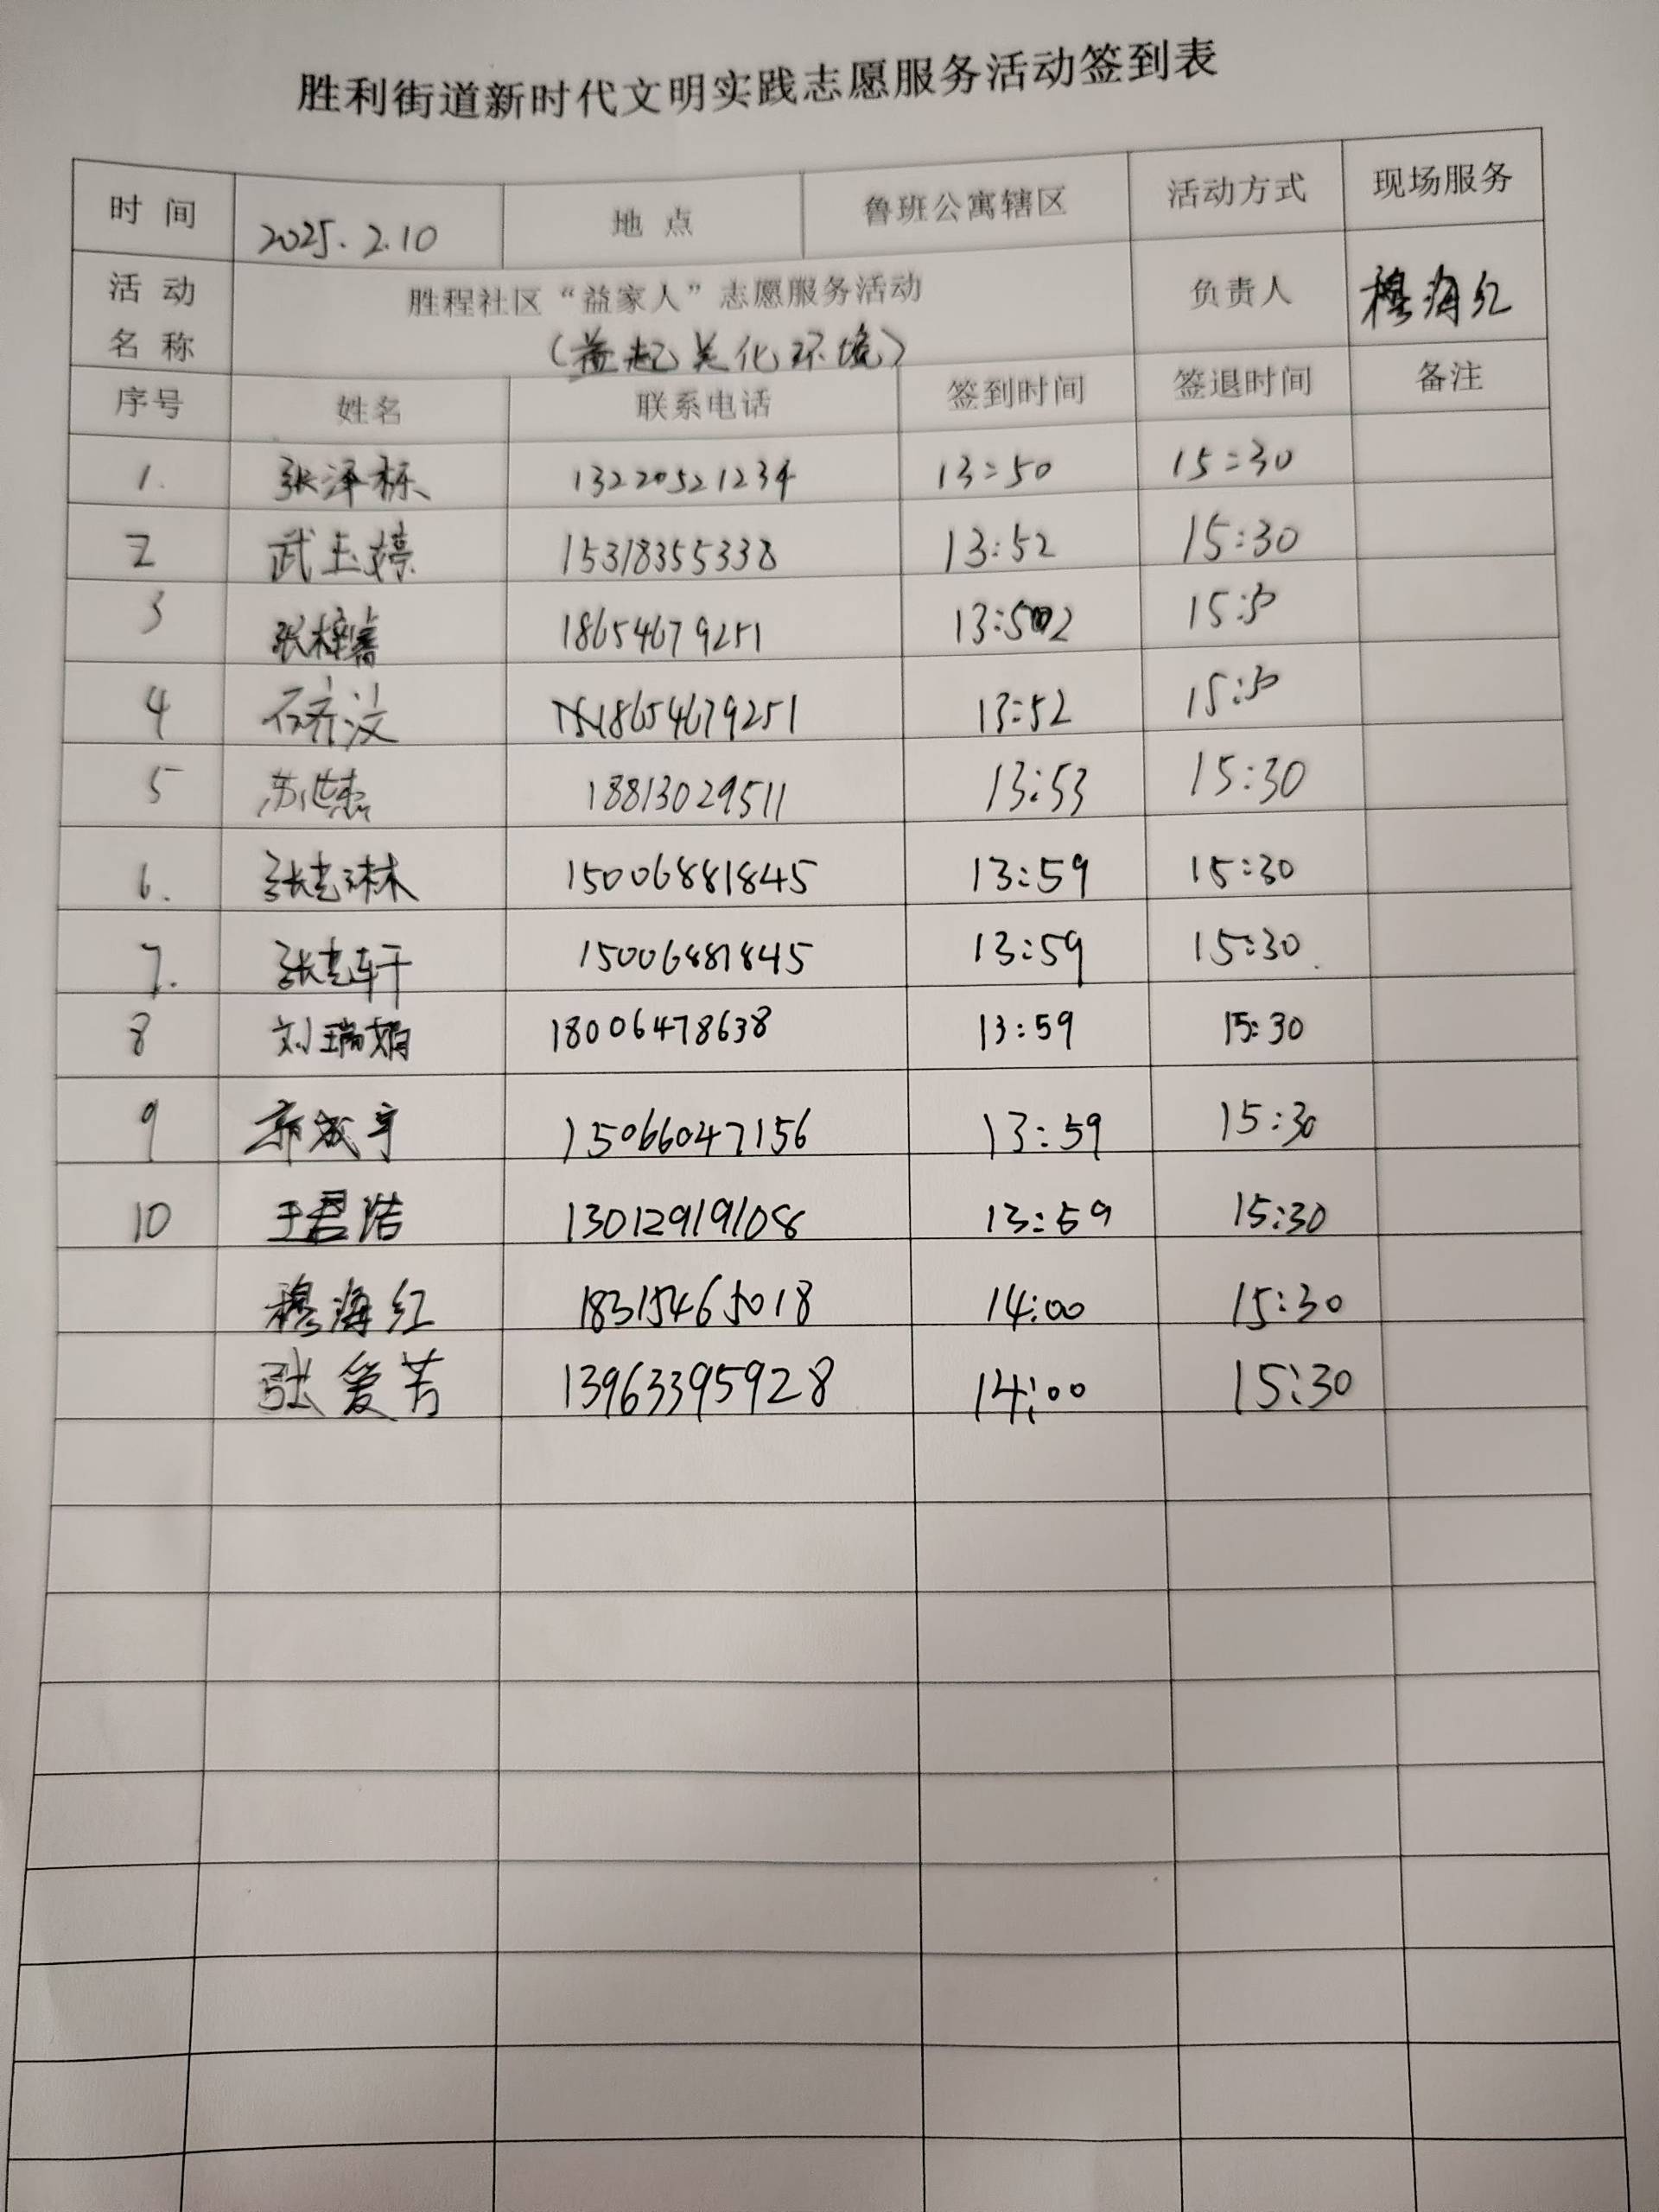 胜利街道新时代文明实践志愿服务活动签到表
时间 2025.2.10 地点 鲁班公寓辖区 活动方式 现场服务
活动名称 胜程社区“益家人”志愿服务活动 负责人 穆海红
（益起美化环境）
序号 姓名 联系电话 签到时间 签退时间 备注
1. 张泽栋 13220521234 13:50 15:30
2 武玉婷 15318355338 13:52 15:30
3 张梓睿 18654679251 13:52 15:30
4 石齐汶 18654679251 13:52 15:30
5 苏世杰 18813029511 13:53 15:30
6. 张志琳 15006881845 13:59 15:30
7. 张志轩 15006881845 13:59 15:30
8 刘瑞娟 18006478638 13:59 15:30
9 15066047156 13:59 15:30
10 王君浩 13012919108 13:59 15:30
穆海红 18315465018 14:00 15:30
张爱芳 13963395928 14:00 15:30